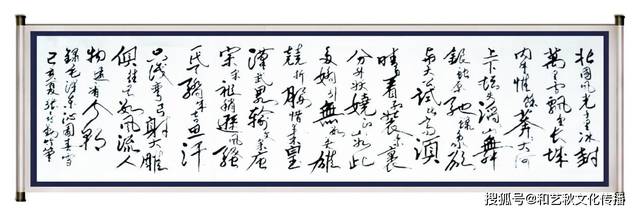 北国风光千里冰封
萬里雪飘望长城
内外惟餘莽莽大河
上下顿失滔滔山舞
银蛇原驰蜡象欲
与天公试比高须
晴日看红装素裹
分外妖娆江山如此
多娇引無数英雄
竞折腰惜秦皇
漢武略输文采唐
宗宋祖稍逊风骚
一代天骄成吉思汗
只识弯弓射大雕
俱往矣数风流人
物还看今朝
录毛泽东沁园春雪
己亥夏张
搜狐号@和艺秋文化传播